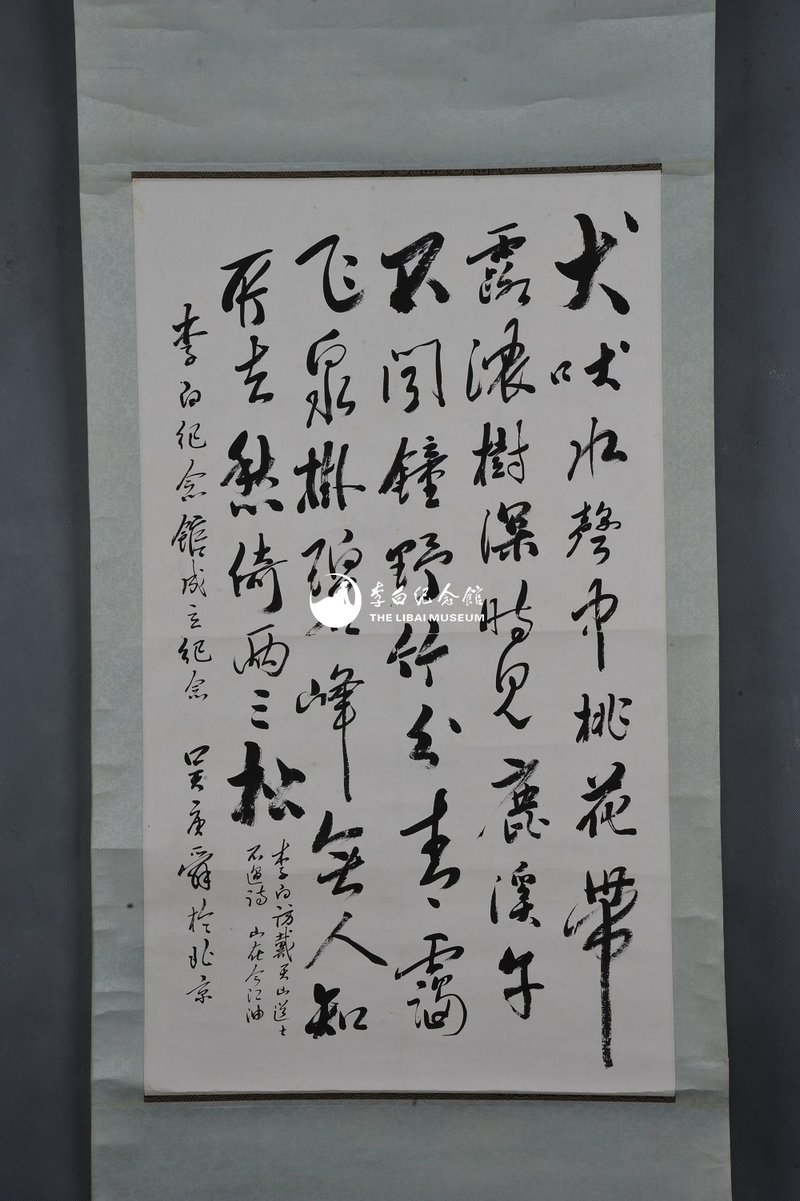 犬吠水聲中桃花帶
露濃樹深時見鹿溪午
不聞鐘野竹分青、靄
飞泉掛碧峰無人知
所去愁倚兩三松
李白訪戴天山道士
不遇詩 山在今江油
李白紀念館成立紀念 吴庚舜於北京
李白纪念館
THE LIBAI MUSEUM